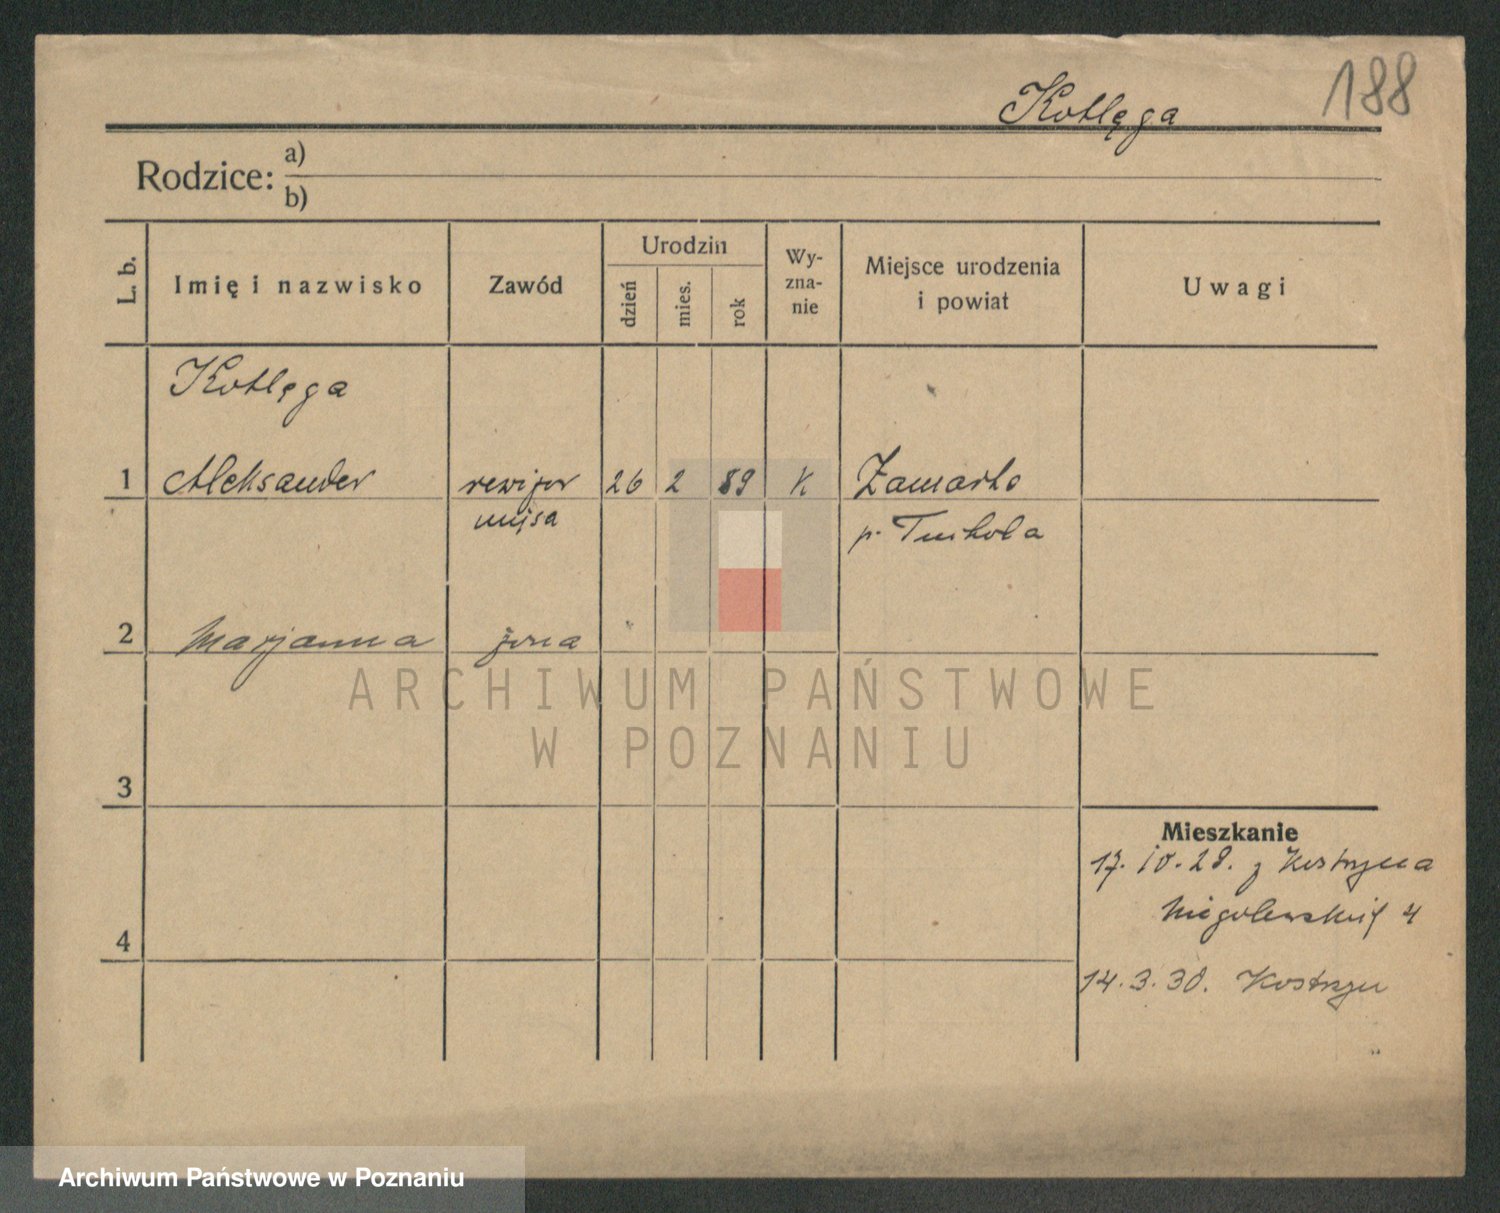 188
Kotlęga
Rodzice: a)
b)
L. b.
Imię i nazwisko
Zawód
Urodzin
dzień
mies.
rok
Wy-
zna-
nie
Miejsce urodzenia
i powiat
Uwagi
Kotlęga
1 Aleksander rewizor 26 2 89 K Zamarte
mięsa p. Tuchola
2 Marjanna żona
ARCHIWUM PAŃSTWOWE
W POZNANIU
3
Mieszkanie
17. 10. 28. z Kostrzyna
Niegolewskich 4
4
14. 3. 30. Kostrzyn
Archiwum Państwowe w Poznaniu